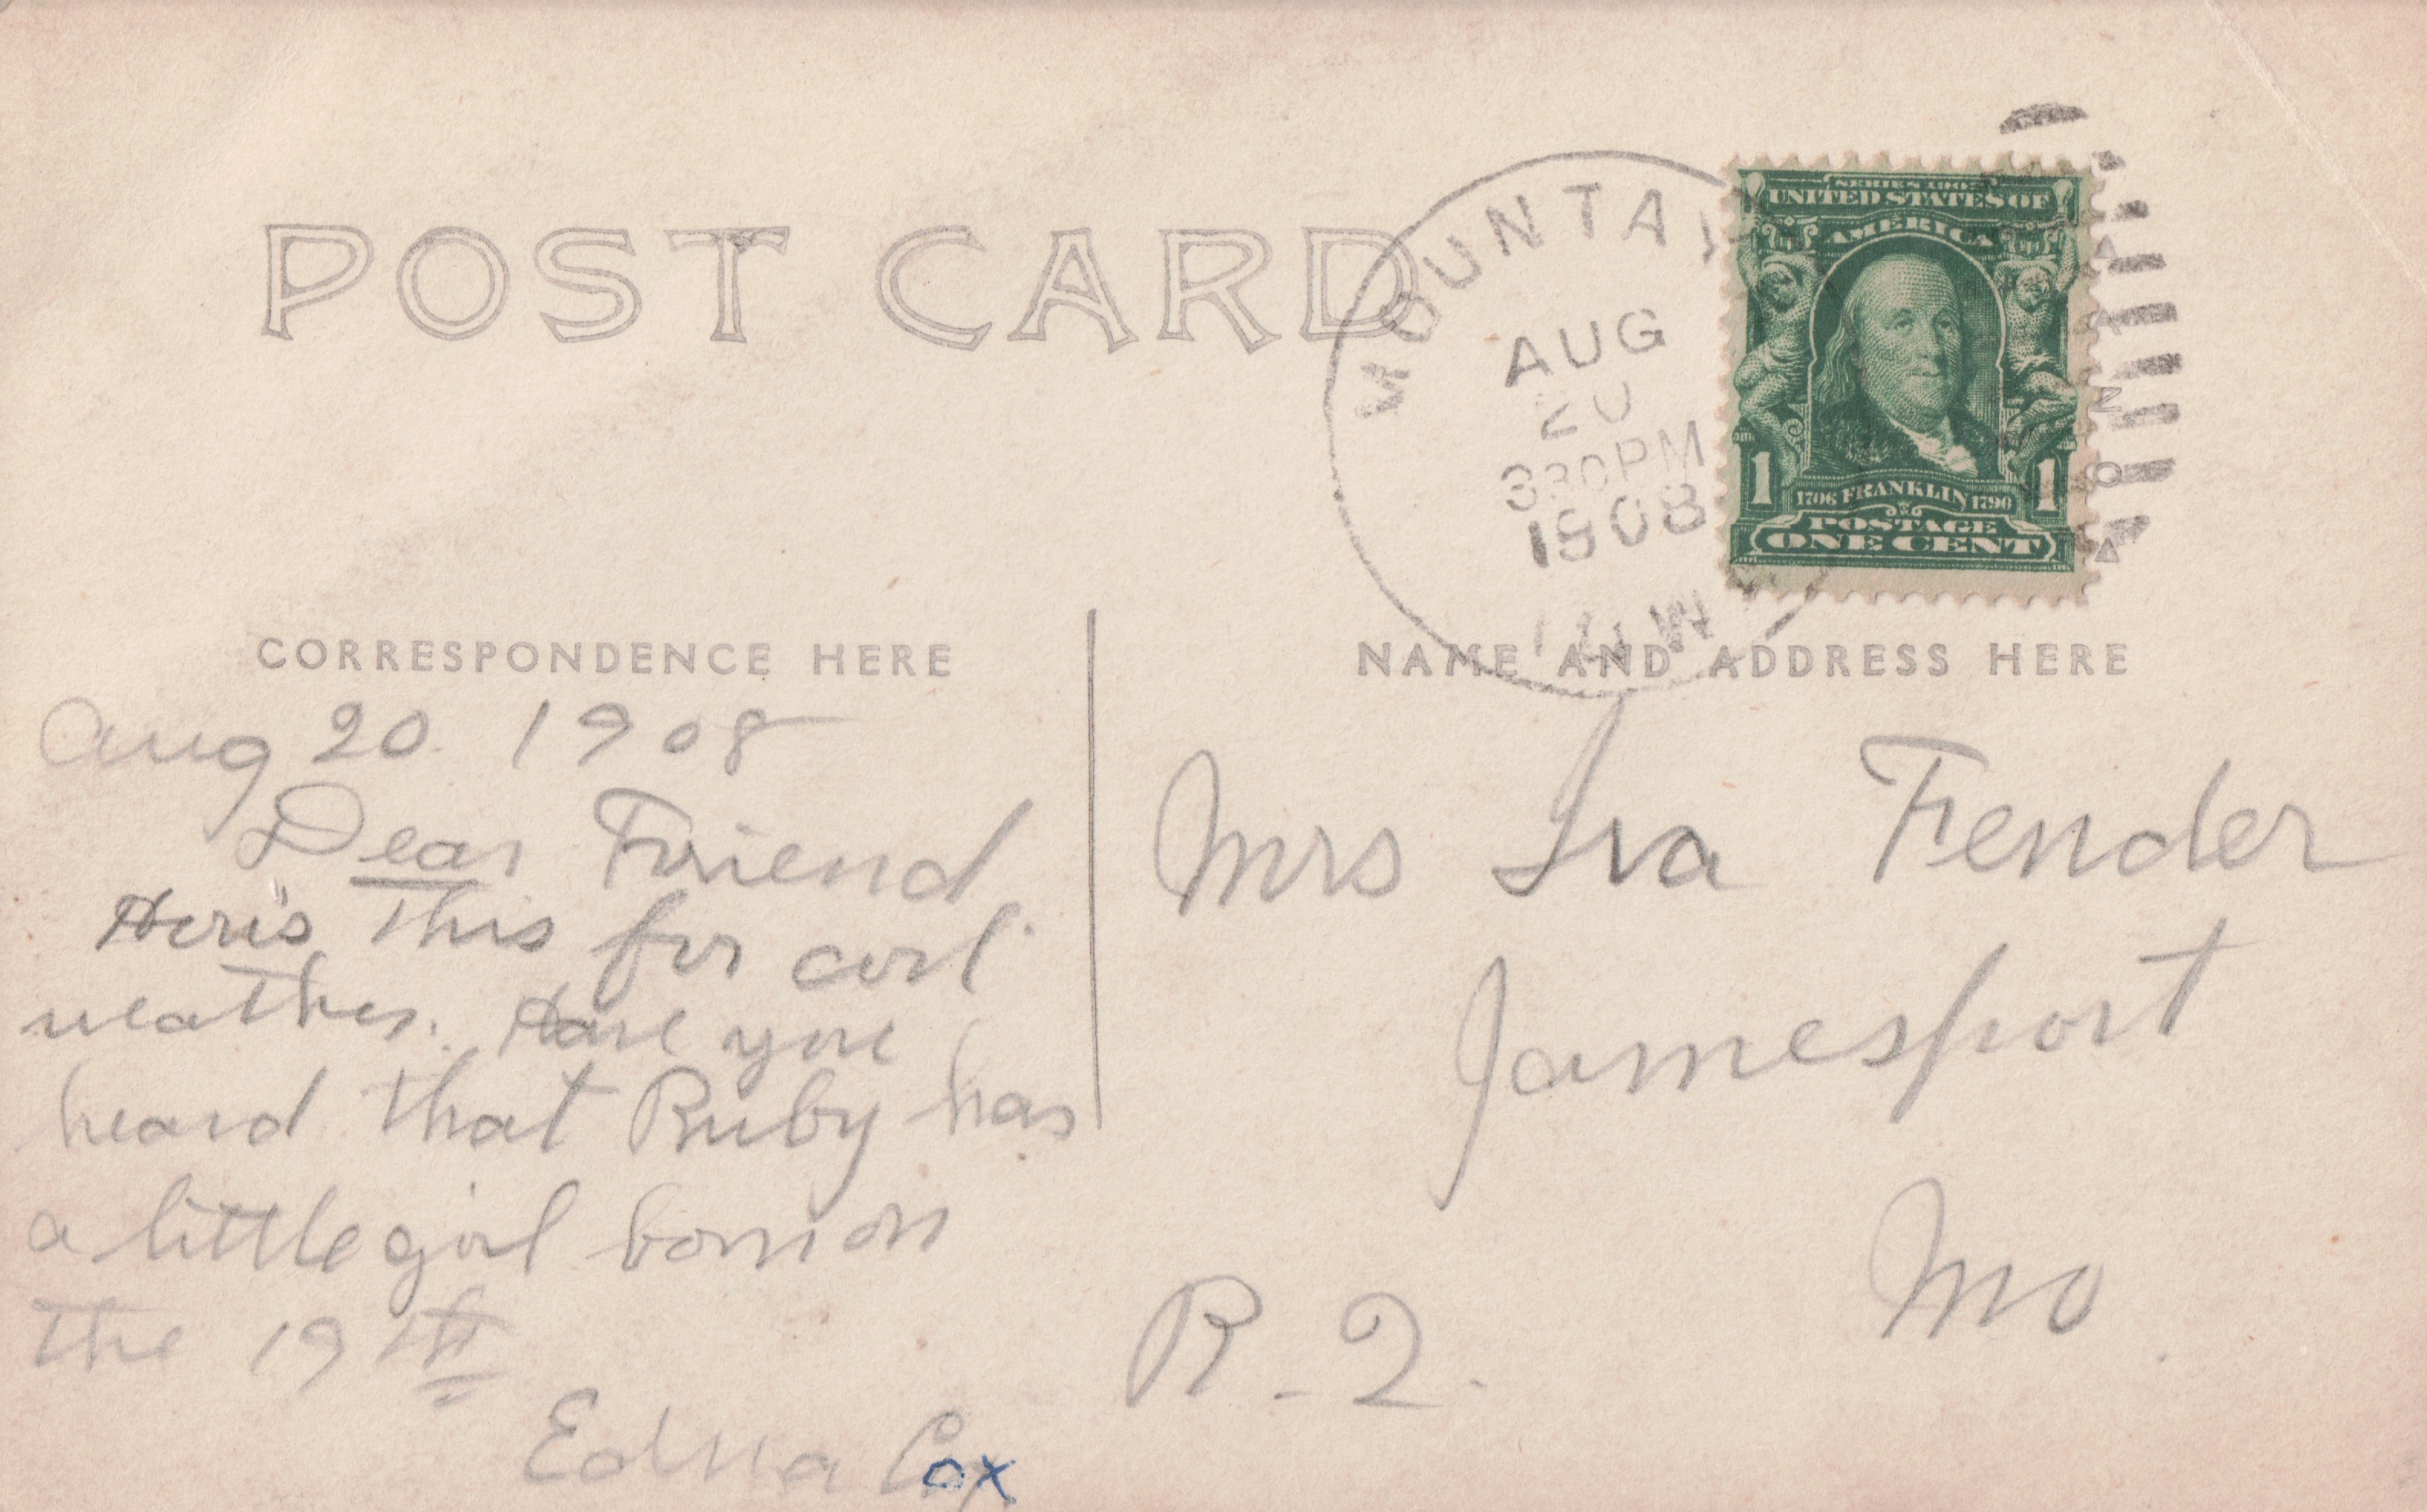 POST CARD
MOUNTAI
AUG
20
330PM
1908
SERIES 1902
UNITED STATES OF
AMERICA
1706 FRANKLIN 1790
1 1
POSTAGE
ONE CENT
CORRESPONDENCE HERE
NAME AND ADDRESS HERE
Aug 20. 1908
Dear Friend
Here's this for cool
weather. Have you
heard that Ruby has
a little girl born on
the 19th
Edna Cox
Mrs Iva Fender
Jamesport
Mo.
R-2.